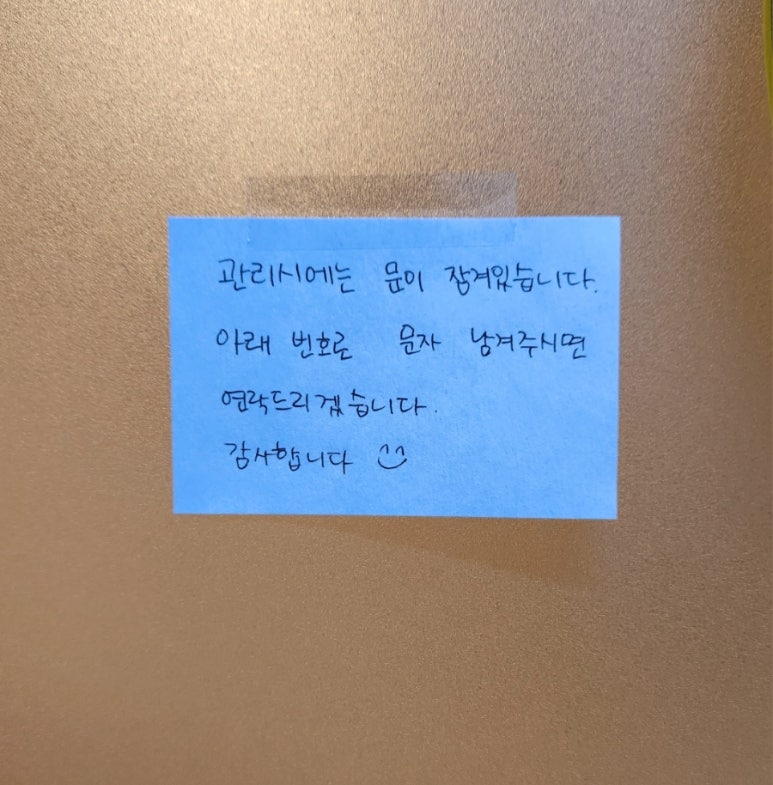 관리시에는 문이 잠겨있습니다.
아래 번호로 문자 남겨주시면
연락드리겠습니다.
감사합니다